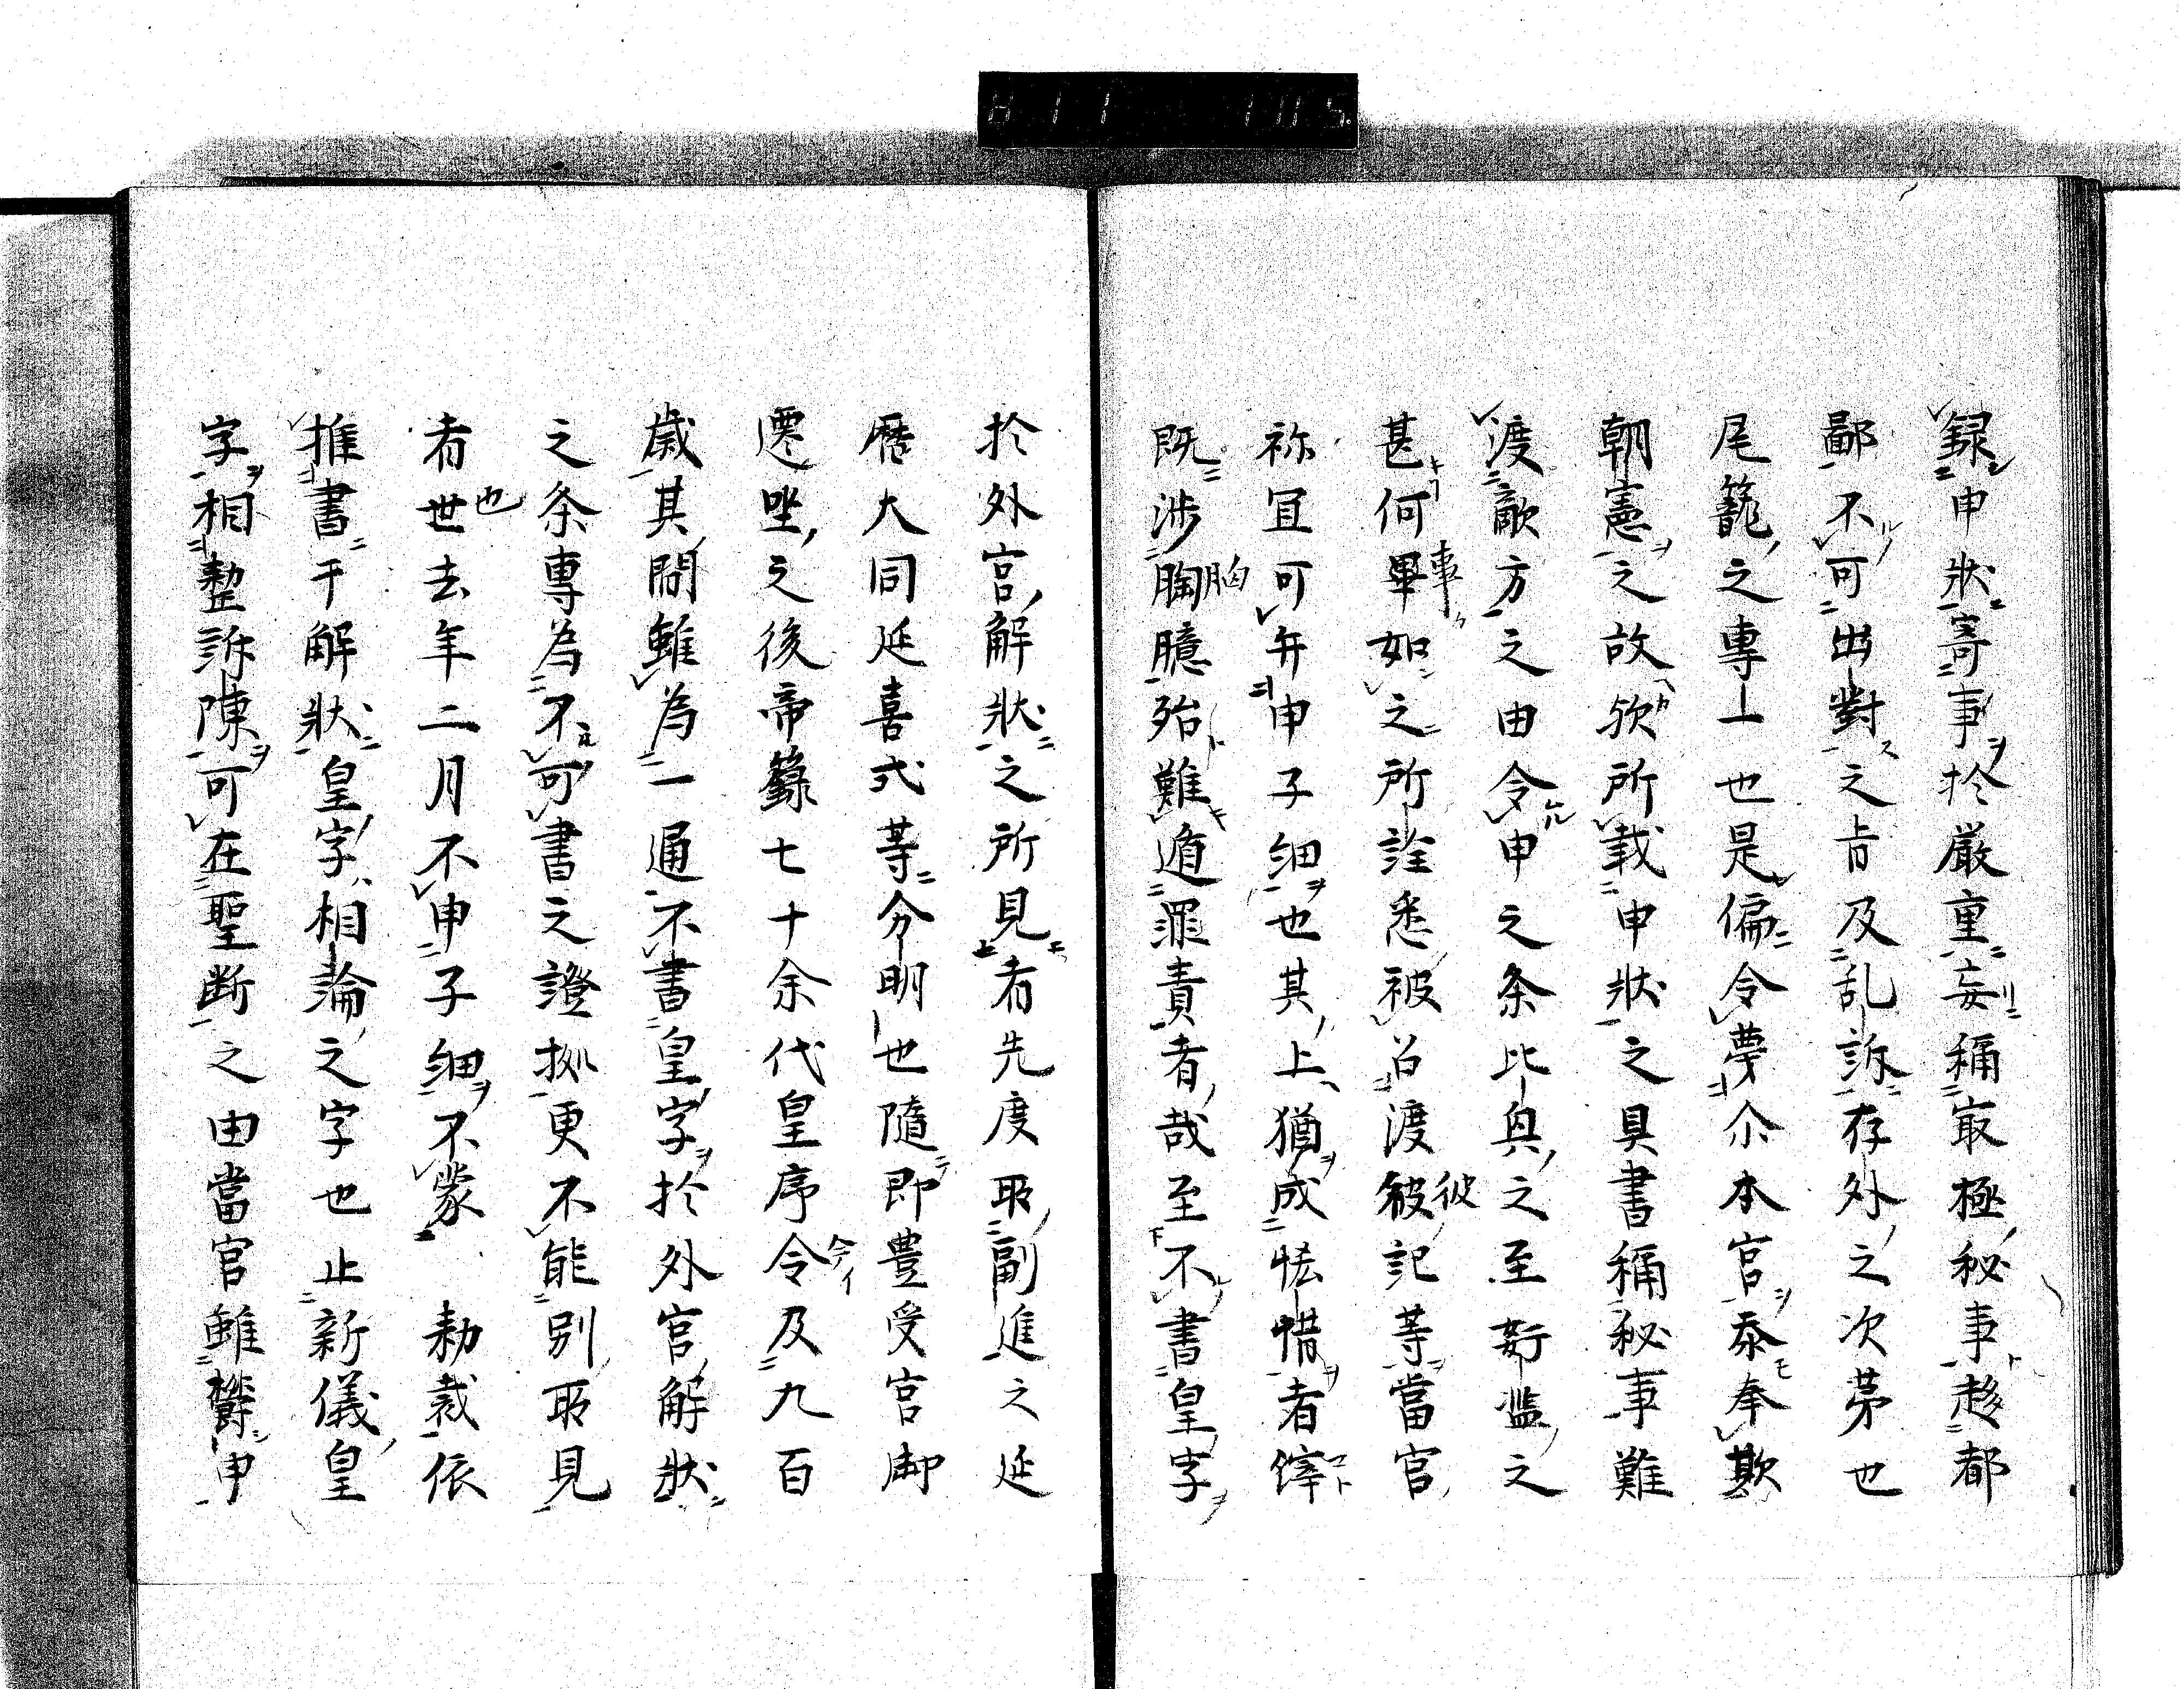 録申状寄事於厳重妄稱寂極秘事趍都
鄙不可出對之旨及乱訴存外之次苐也
尾籠之專一也是偏令夢尒本官忝奉欺
朝憲之故欤所載申状之具書稱秘事難
渡敵方之由令申之条比興之至新濫之
甚何畢如之所詮悉被召渡彼記等當官
祢冝可弁申子細也其上猶成恡惜者
既涉胸臆殆難遁罪責者哉至不書皇字
於外宮解状之所見者先度取副進之延
暦大同延喜式等分明也隨即豊受宮御
遷坐之後帝籙七十余代皇序令及九百
歳其間雖為一通不書皇字於外宮解状
之条專為不可書之證拠更不能別取見
者也去年二月不申子細不蒙 勅裁依
推書于解状皇字相論之字也止新儀皇
字相整訴陳可在聖断之由當官雖欝申